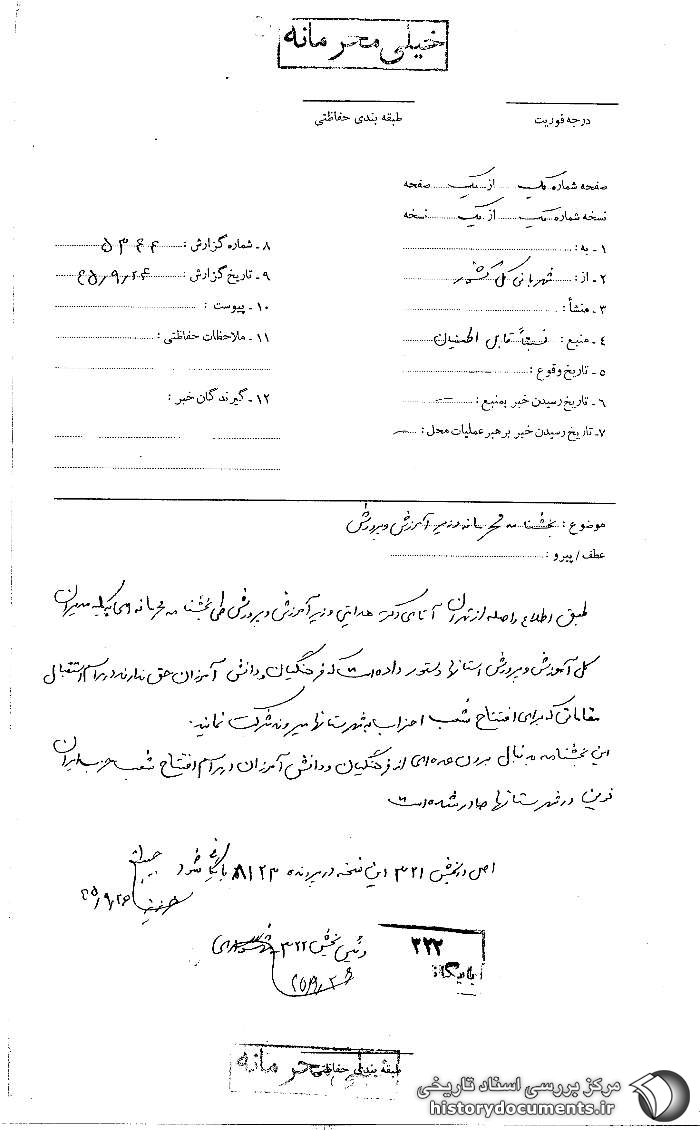 خیلی محرمانه
درجه فوریت
طبقه بندی حفاظتی
صفحه شماره یک از یک صفحه
نسخه شماره یک از یک نسخه
۱ - به :
۲ - از : شهربانی کل کشور
۳ - منشأ :
۴ - منبع : نسبتاً قابل اطمینان
۵ - تاریخ وقوع :
۶ - تاریخ رسیدن خبر بمنبع :
۷ - تاریخ رسیدن خبر برهبر عملیات محل :
۸ - شماره گزارش :
۹ - تاریخ گزارش : ۴۵/۹/۲۴
۱۰ - پیوست :
۱۱ - ملاحظات حفاظتی :
۱۲ - گیرندگان خبر :
موضوع : بخشنامه محرمانه وزیر آموزش و پرورش
عطف / پیرو :
طبق اطلاع واصله از تهران آقای دکتر هدایتی وزیر آموزش و پرورش طی بخشنامه محرمانه ای بکلیه مدیران
کل آموزش و پرورش استانها دستور داده است که فرهنگیان و دانش آموزان حق ندارند در مراسم استقبال
مقاماتی که برای افتتاح شعب احزاب به شهرستانها میروند شرکت نمایند.
این بخشنامه به دنبال بردن عده ای از فرهنگیان و دانش آموزان در مراسم افتتاح شعب حزب ایران
نوین در شهرستانها صادر شده است
اصل در بخش ۳۲۱ این نسخه در پرونده ۸۱۲۳ بایگانی شود
۴۵/۹/۲۶
رئیس بخش ۳۲۲
۳۲۲
بایگانی
طبقه بندی حفاظتی
خیلی محرمانه
مرکز بررسی اسناد تاریخی
historydocuments.ir